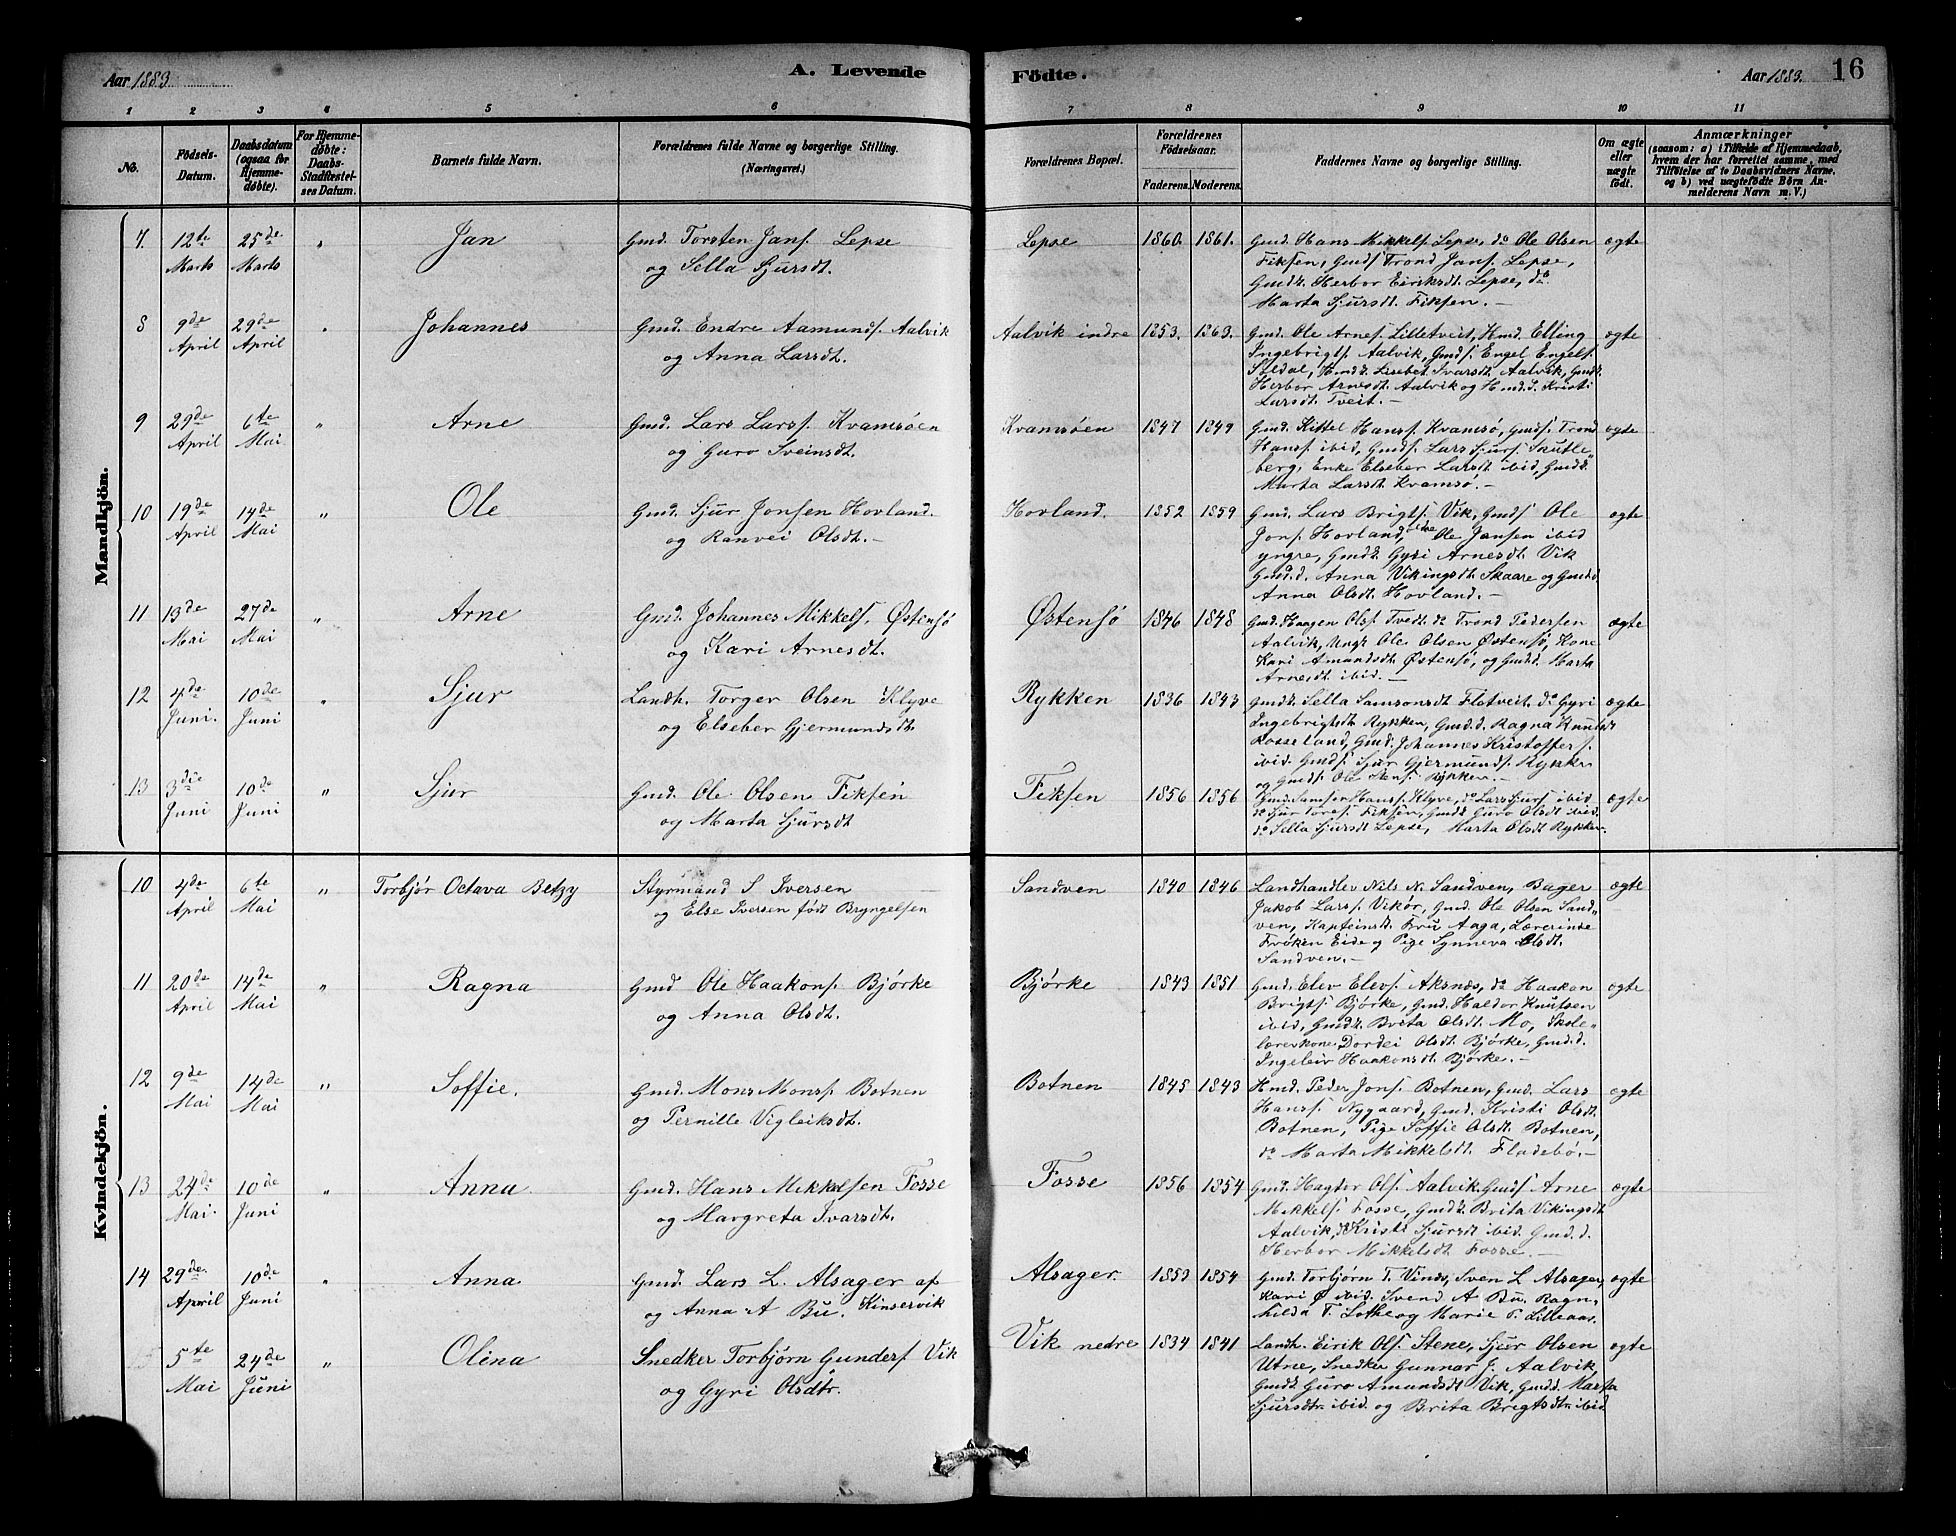 Aar 1883.
A. Levende
Födte.
Aar 1883.
16
1 2 3 4 5 6 7 8 9 10 11
No.
Födsels-
Datum.
Daabsdatum
(ogsaa for
Hjemme-
døbte).
For Hjemme-
døbte:
Daabs-
Stadfæstel-
ses Datum.
Barnets fulde Navn.
Forældrenes fulde Navne og borgerlige Stilling.
(Næringsvei.)
Forældrenes Bopæl.
Forældrenes
Fødselsaar.
Faderens. Moderens.
Faddernes Navne og borgerlige Stilling.
Om ægte
eller
uægte
født.
Anmærkninger
(saasom: a) i Tilfælde af Hjemmedaab,
hvem der har forrettet samme, med
Tilföielse af to Daabsvidners Navne.
og b) ved uægtefödte Börn An-
melderens Navn m. V.)
Mandkjön.
7. 12te Marts 25de Marts " Jan
Gmd. Torsten Jans. Lepse
og Sella Sjursdt.
Lepse 1860. 1861.
Gmd. Hans Mikkels. Lepse, do Ole Olsen
Fiksen, Gmds. Trond Jans. Lepse,
Gmdk. Herbor Eiriksdt. Lepse, do
Marta Sjursdt. Fiksen. -
ægte
8 9de April 29de April " Johannes
Gmd. Endre Aamunds. Aalvik
og Anna Larsdt.
Aalvik indre 1853. 1863.
Gmd. Ole Arnes. Lilletveit, Hmd. Elling
Ingebrigts. Aalvik, Gmds. Engel Engels.
Soldal, Hmdk. Lisebet Ivarsdt. Aalvik, Gmdk.
Herbor Arnesdt. Aalvik og Hmd.d. Kristi
Larsdt. Tveit. -
ægte
9 29de April 6te Mai " Arne
Gmd. Lars Larss. Kvamsöen
og Guro Sveinsdt.
Kvamsöen 1847 1849
Gmd. Kittel Hanss. Kvamsö, Gmds. Trond
Hanss. ibid, Gmds. Lars Sjurs. Skutle-
berg, Enke Elseber Larsdt. ibid, Gmdd.
Marta Larsdt. Kvamsö. -
ægte
10 19de April 14de Mai " Ole
Gmd. Sjur Jonsen Hovland.
og Ranvei Olsdt. -
Hovland. 1852 1859
Gmd. Lars Brigts. Vik, Gmds. Ole
Jons. Hovland, Ole Jansen ibid
yngre, Gmdk. Gyri Arnesdt. Vik
Gmd.d. Anna Vikingsdt. Skaare og Gmd.d
Anna Olsdt. Hovland. -
ægte
11 13de Mai 27de Mai " Arne
Gmd. Johannes Mikkels. Østensö
og Kari Arnesdt.
Østensö 1846 1848
Gmd. Haagen Ols. Tvedt. do Trond Pedersen
Aalvik, Ungk. Ole Olsen Østensö, Kone
Kari Amundsdt. Østensö, og Gmd.d. Marta
Arnesdt. ibid. -
ægte
12 4de Juni. 10de Juni " Sjur
Landh. Torger Olsen Klyve
og Elseber Gjermundsdt.
Rykken 1836 1843
Gmdk. Sella Samsonsdt. Flotveit, do Gyri
Ingebrigtsdt. Rykken, Gmd.d. Ragna Knutsdt
Rosseland, Gmd. Johannes Kristoffers.
ibid. Gmds. Sjur Gjermunds. Rykken
og Gmds. Ole Stens. Rykken. -
ægte
13 3die Juni 10de Juni " Sjur
Gmd. Ole Olsen Fiksen
og Marta Sjursdt
Fiksen 1856 1856
Gmd. Samson Hanss. Klyve, do Lars Sjurs. ibid
do Sjur Tores. Fiksen, Gmdk Guro Olsdt ibid.
do Sella Sjursdt Lepse, Marta Olsdt Rykken.
ægte
Kvindekjön.
10 4de April 6te Mai " Torbjør Octava Betzy
Styrmand S Iversen
og Else Iversen født Bryngelsen
Sandven 1840 1846
Landhandler Nils N. Sandven, Bager
Jakob Larss. Vikør, Gmd. Ole Olsen Sand-
ven, Kapteinsdt. Fru Aaga, Lærerinde
Frøken Eide og Pige Synneva Olsdt.
Sandven. -
ægte
11 20de April 14de Mai " Ragna
Gmd Ole Haakons. Bjørke
og Anna Olsdt.
Bjørke 1843 1851
Gmd. Elev Elevs. Aksnæs, do Haakon
Brigts. Bjørke, Gmd. Haldor Knutsen
ibid, Gmdk. Brita Olsdt. Mo, Skole-
lærerkone Dordei Olsdt. Bjørke, Gmd.d.
Ingeleiv Haakonsdt Bjørke. -
ægte
12 9de Mai 14de Mai " Soffie.
Gmd. Mons Monss. Botnen
og Pernille Vigleiksdt.
Botnen 1845 1843
Hmd. Peder Jons. Botnen, Gmd. Lars
Hanss. Nygaard, Gmd. Kristi Olsdt.
Botnen, Pige Soffie Olsdt. Botnen,
do Marta Mikkelsdt. Fladebö. -
ægte
13 24de Mai. 10de Juni " Anna
Gmd. Hans Mikkelsen Fosse
og Margreta Ivarsdt.
Fosse 1856 1854
Gmd. Hagtor Ols. Aalvik. Gmds. Arne
Mikkels. Fosse, Gmdk. Brita Vikingsdt.
Aalvik, do Kristi Sjursdt ibid Gmd.d.
Herbor Mikkelsdt. Fosse. -
ægte
14 29de April 10de Juni " Anna
Gmd. Lars L. Alsager af
og Anna A Bu. Kinservik
Alsager. 1853 1854
Gmd. Torbjørn T. Vines, Sven L Alsager,
Kari Ø ibid. Svend A Bu. Ragn-
hilda T. Lothe og Marie P. Lilleaas.
ægte
15 5te Mai 24de Juni " Olina
Snedker Torbjørn Gunders. Vik
og Gyri Olsdtr.
Vik nedre 1834 1841
Landh. Eirik Ols. Stene, Sjur Olsen
Utne, Snedker Gunnar J. Aalvik,
Gmdk. Guro Amundsdt Vik, Gmdd. Marta
Sjursdtr. ibid. og Brita Brigtsdtr. ibid
ægte